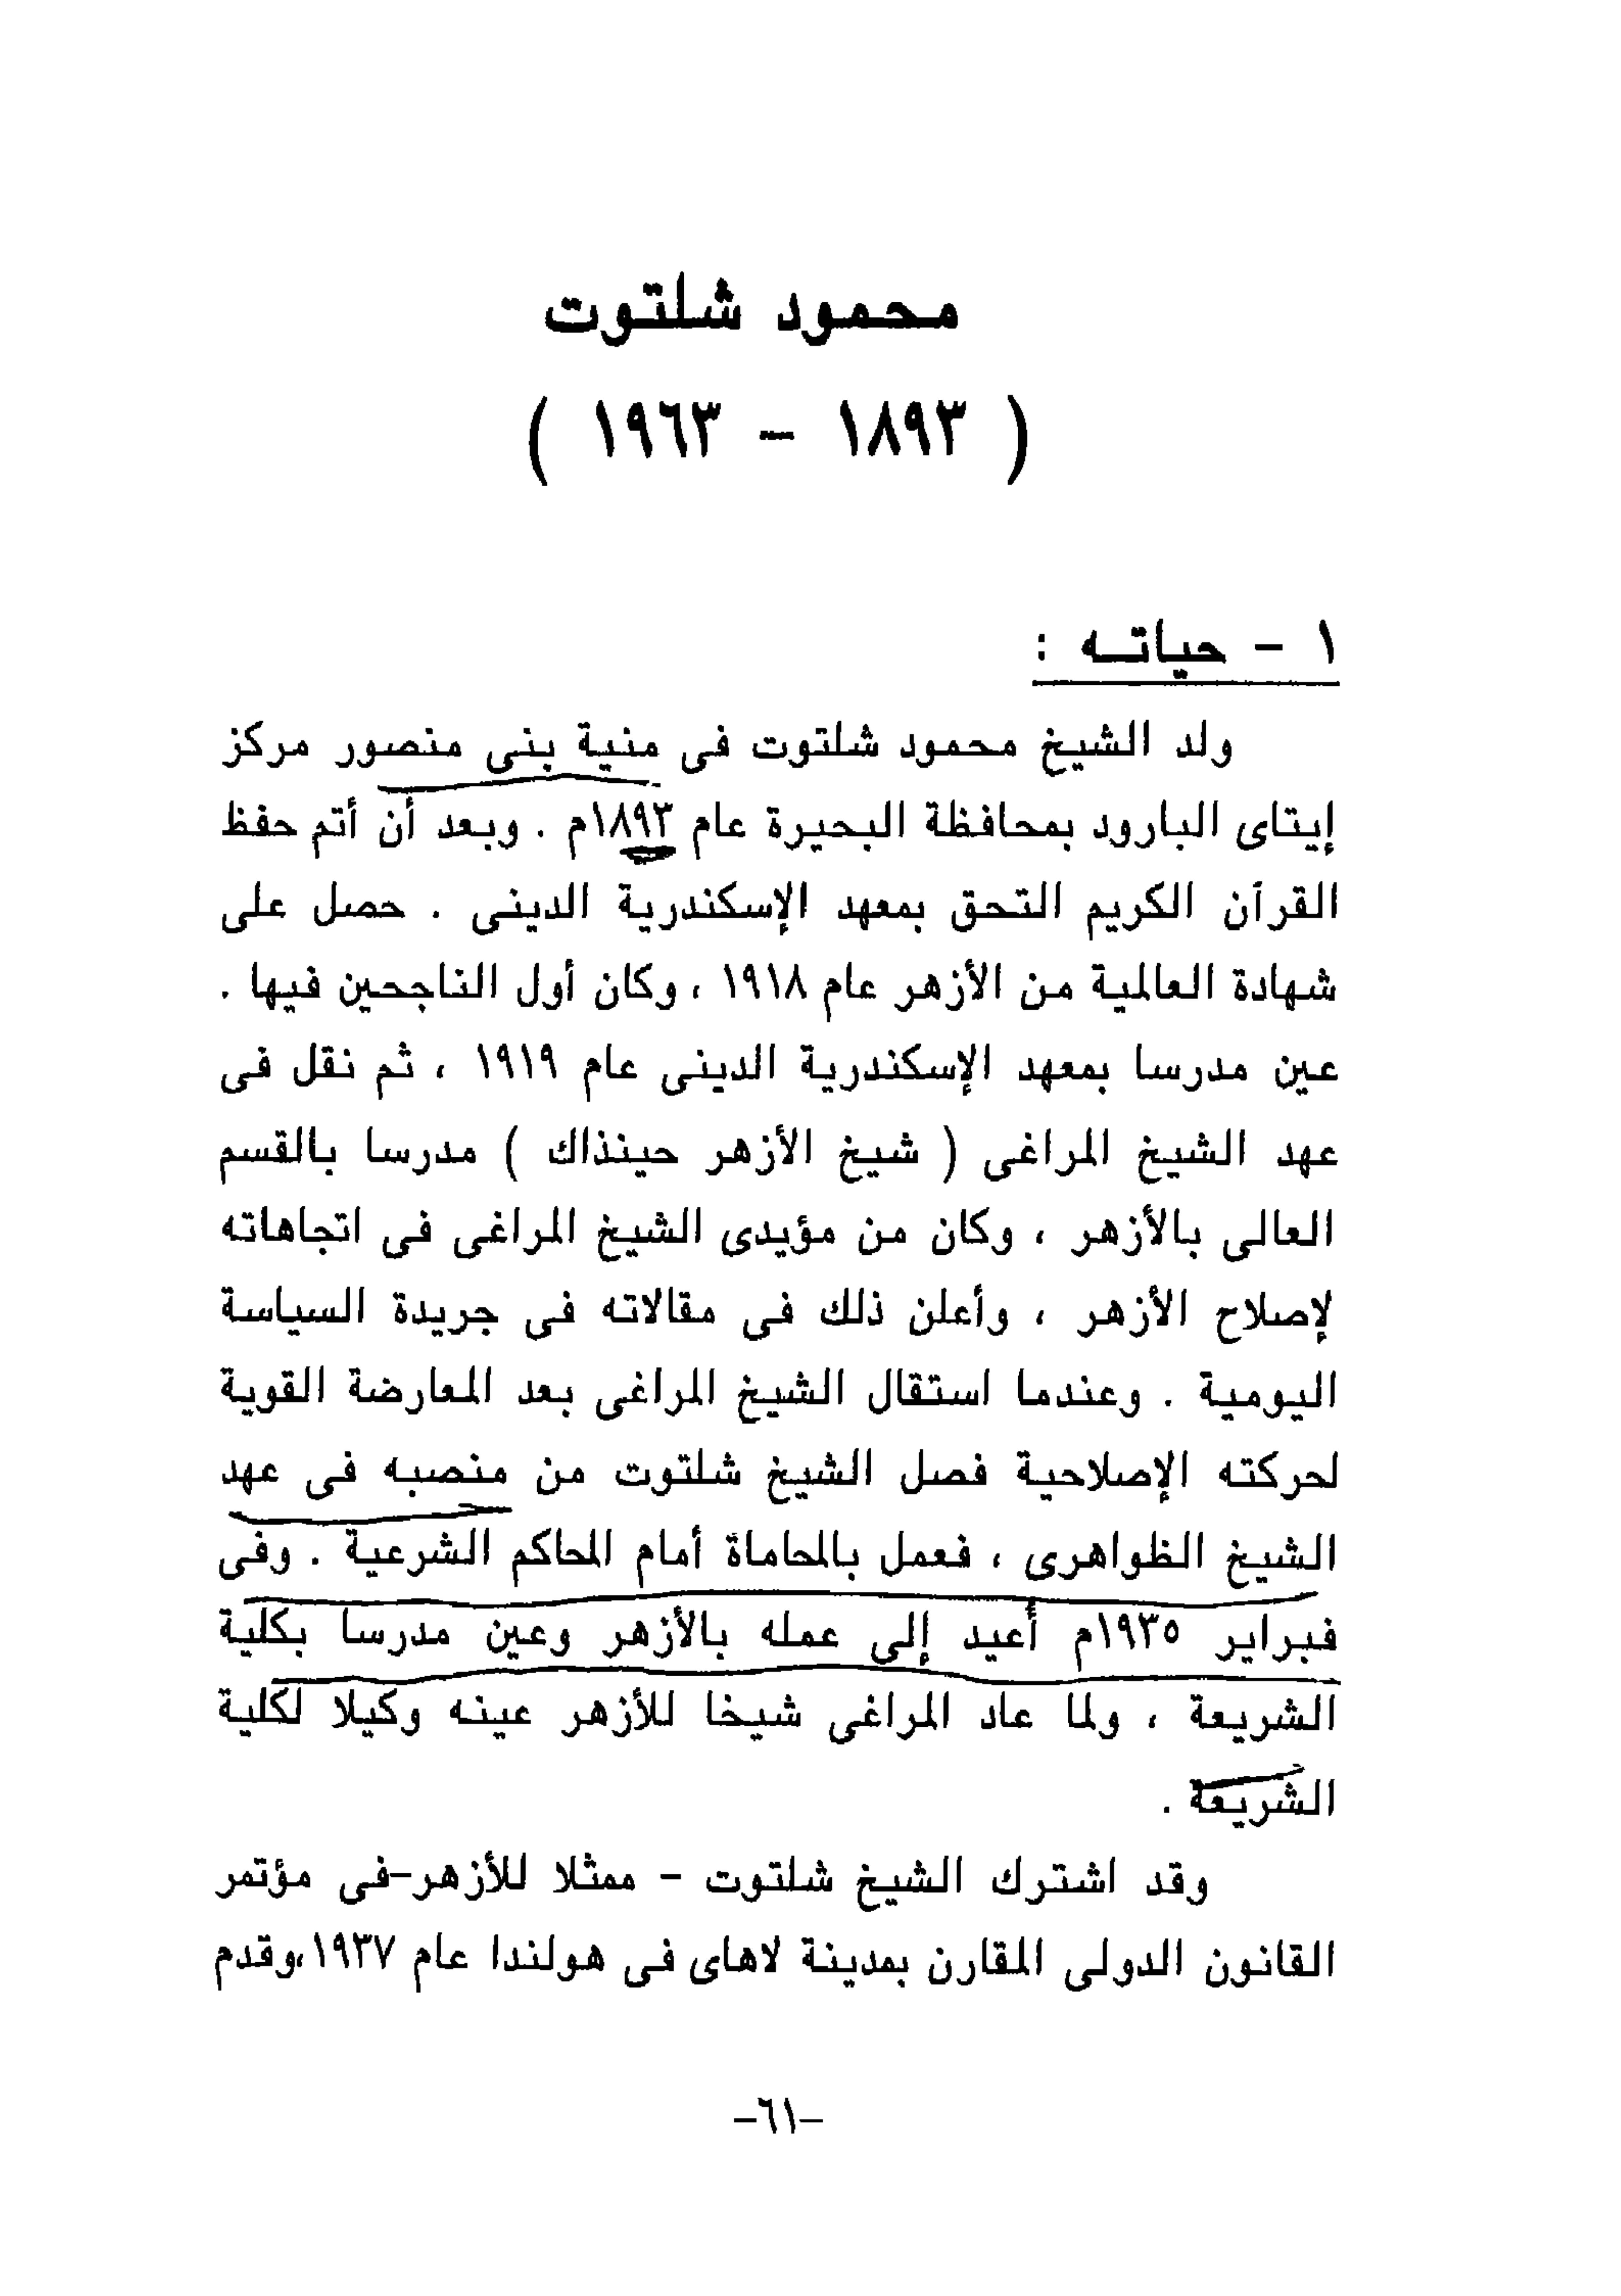 محمود شلتوت
( ١٨٩٣ - ١٩٦٣ )
١ - حياتـه :
ولد الشيخ محمود شلتوت فى منية بنى منصور مركز
إيتاى البارود بمحافظة البحيرة عام ١٨٩٣م . وبعد أن أتم حفظ
القرآن الكريم التحق بمعهد الإسكندرية الدينى . حصل على
شهادة العالمية من الأزهر عام ١٩١٨ ، وكان أول الناجحين فيها .
عين مدرسا بمعهد الإسكندرية الدينى عام ١٩١٩ ، ثم نقل فى
عهد الشيخ المراغى ( شيخ الأزهر حينذاك ) مدرسا بالقسم
العالى بالأزهر ، وكان من مؤيدى الشيخ المراغى فى اتجاهاته
لإصلاح الأزهر ، وأعلن ذلك فى مقالاته فى جريدة السياسة
اليومية . وعندما استقال الشيخ المراغى بعد المعارضة القوية
لحركته الإصلاحية فصل الشيخ شلتوت من منصبه فى عهد
الشيخ الظواهرى ، فعمل بالمحاماة أمام المحاكم الشرعية . وفى
فبراير ١٩٣٥م أعيد إلى عمله بالأزهر وعين مدرسا بكلية
الشريعة ، ولما عاد المراغى شيخا للأزهر عينه وكيلا لكلية
الشريعة .
وقد اشترك الشيخ شلتوت - ممثلا للأزهر-فى مؤتمر
القانون الدولى المقارن بمدينة لاهاى فى هولندا عام ١٩٣٧،وقدم
-٦١-